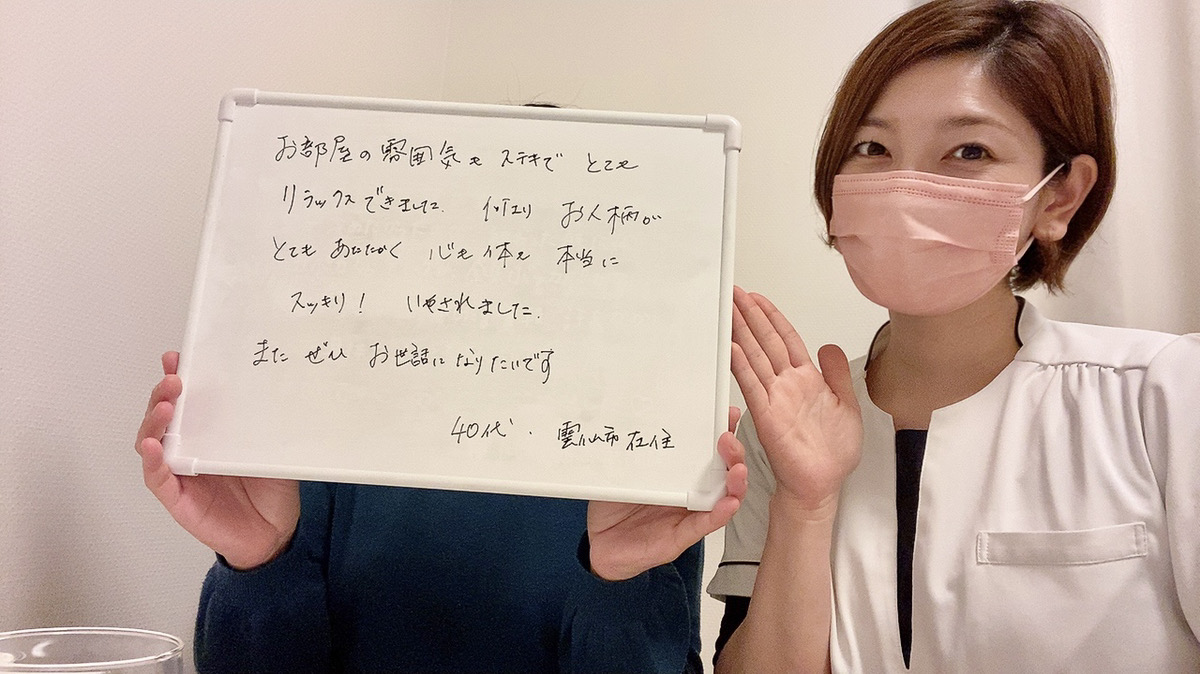 お部屋の雰囲気もステキで とても
リラックスできました. 何より お人柄が
とても あたたかく 心も体も 本当に
スッキリ! いやされました.
また ぜひ お世話になりたいです
40代・雲仙市在住